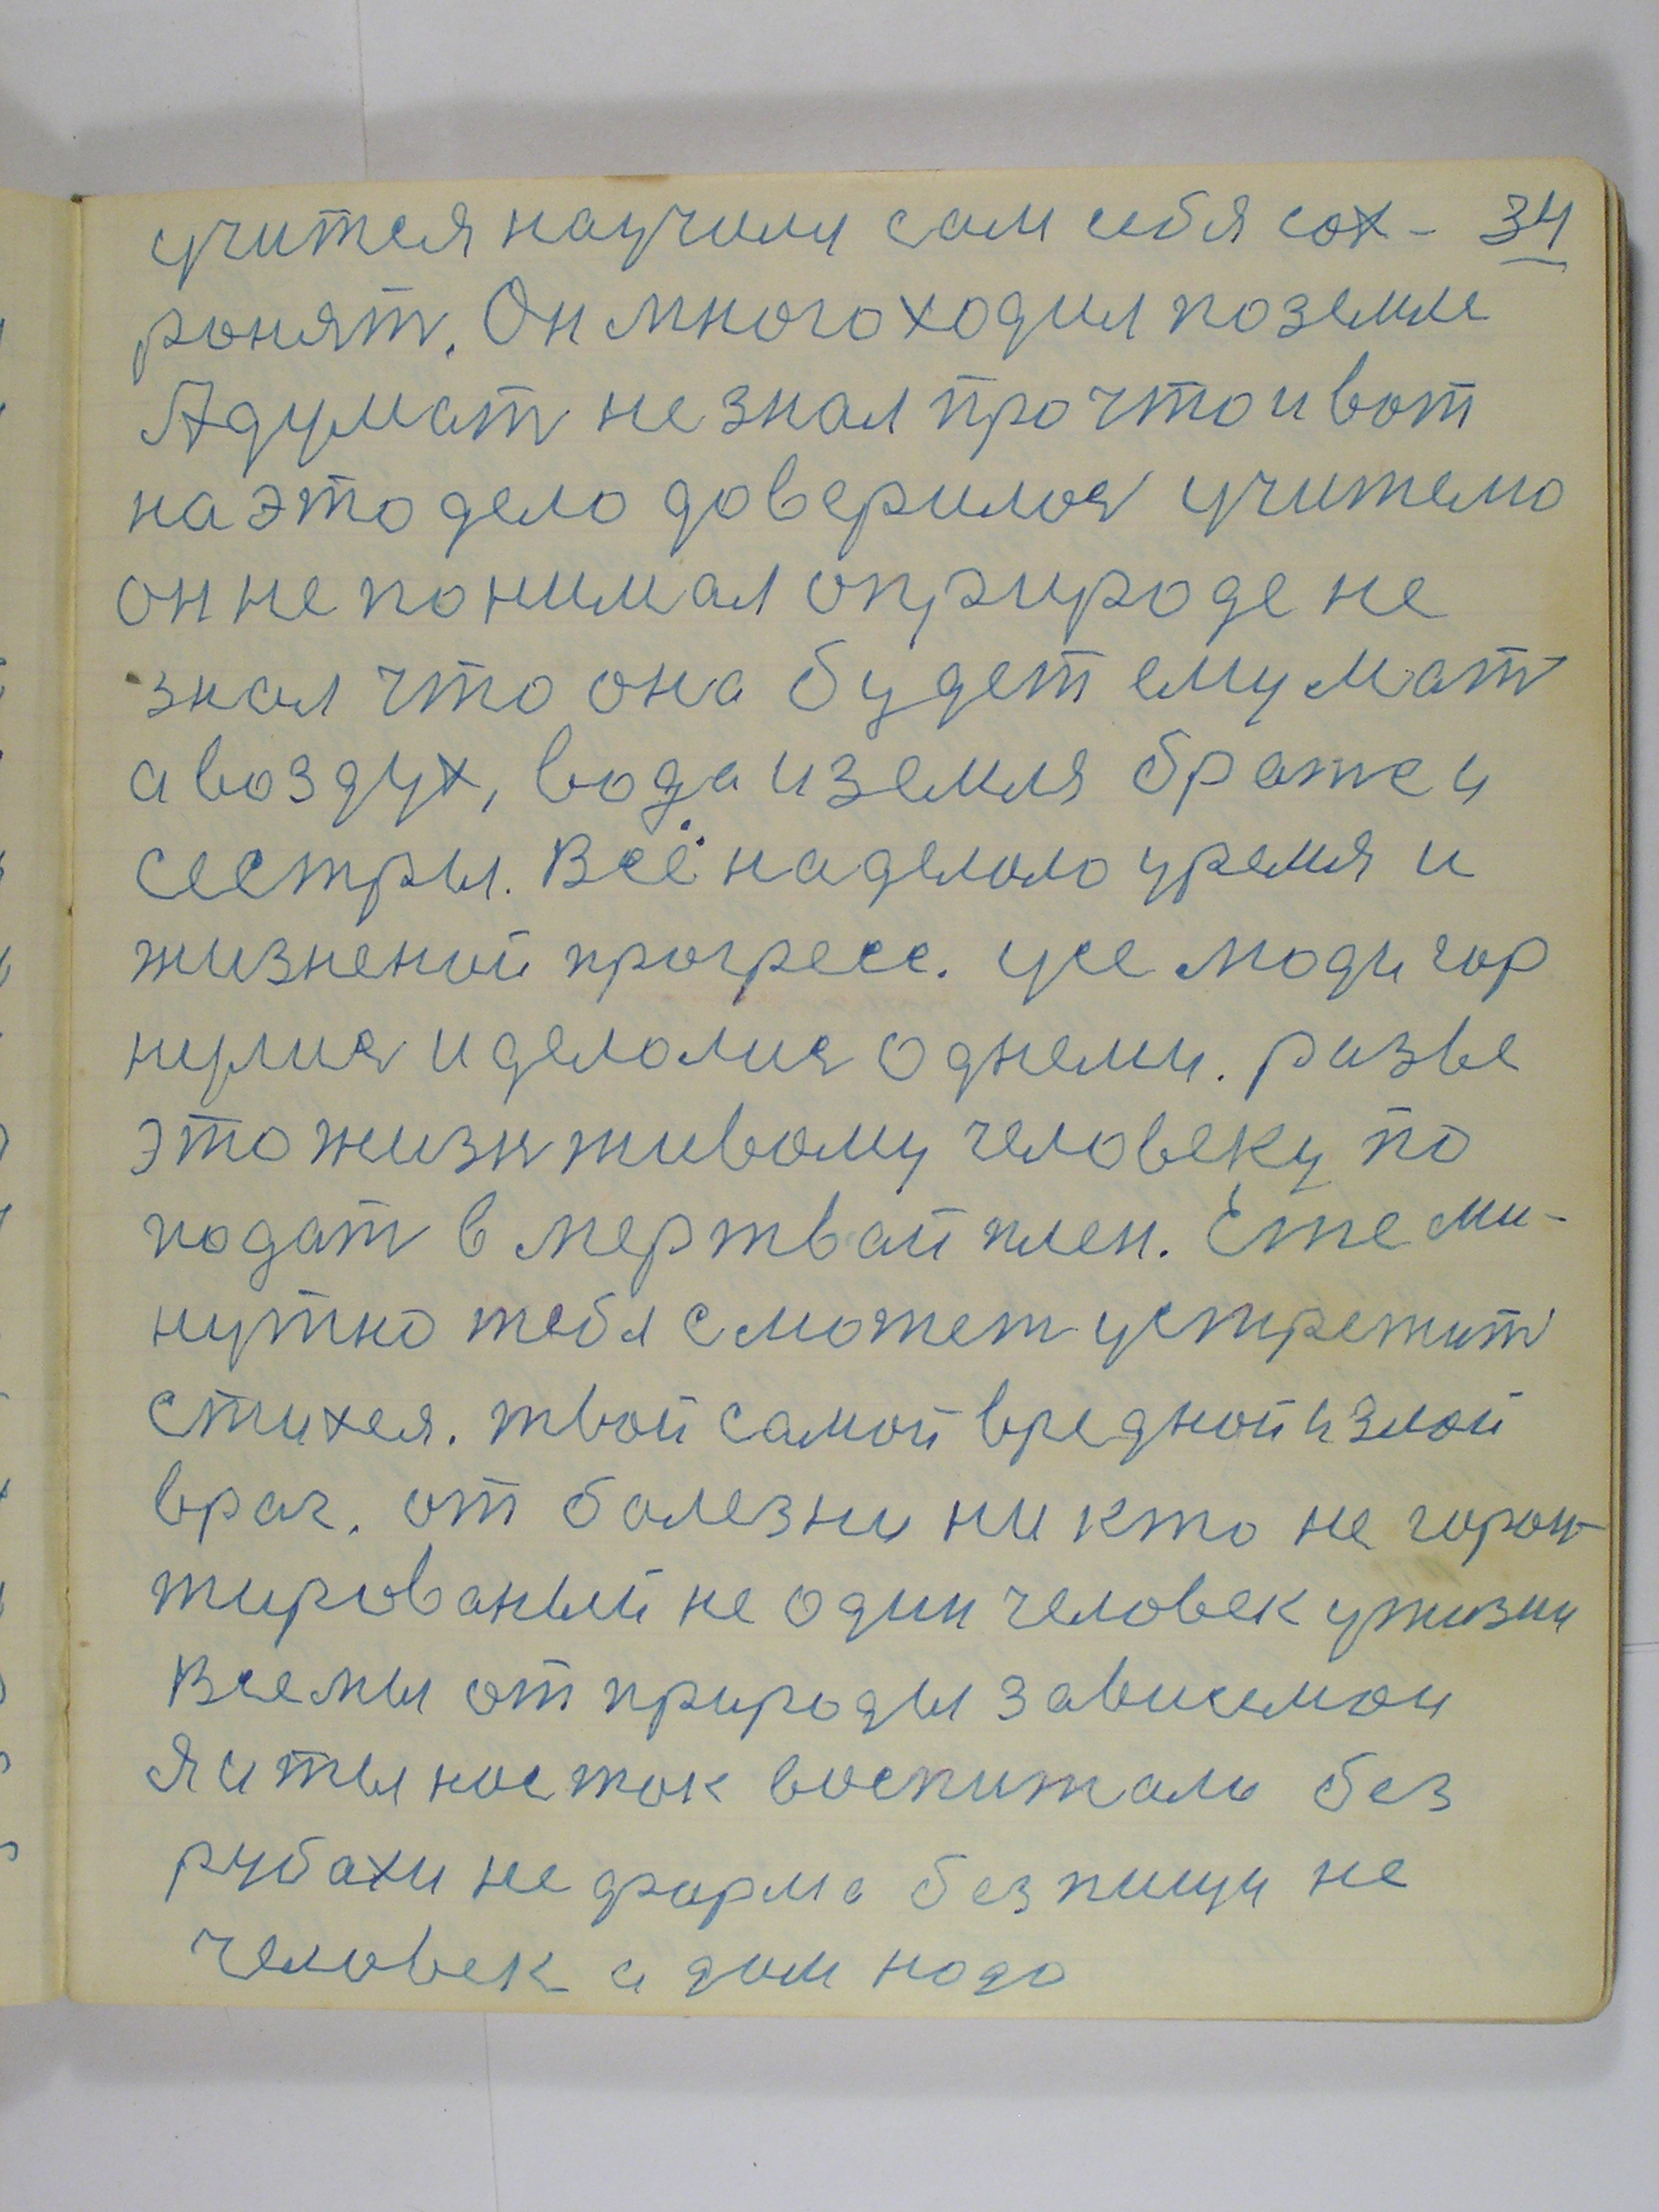 учится научили сам себя сох- 34
ронят. Он много ходил по земле
А думат не знал про что и вот
на это дело доверился учителю
он не понимал о природе не
знал что она будет ему мат
а воздух, вода и земля братя и
сестры. Всё наделало уремя и
жизненой прогресс. усе люди гор
нулис и делалис однеми. разве
это жизн живому человеку по
подат в мертвай плен. Еже ми-
нутно тебя сможет устретит
стихея. твой самой вредной и злой
враг. от болезни ни кто не горон
тированый не один человек ужизни
Все мы от природы зависемои
Я и ты нас так воспитали без
рубахи не форма без пищи не
человек а дом надо